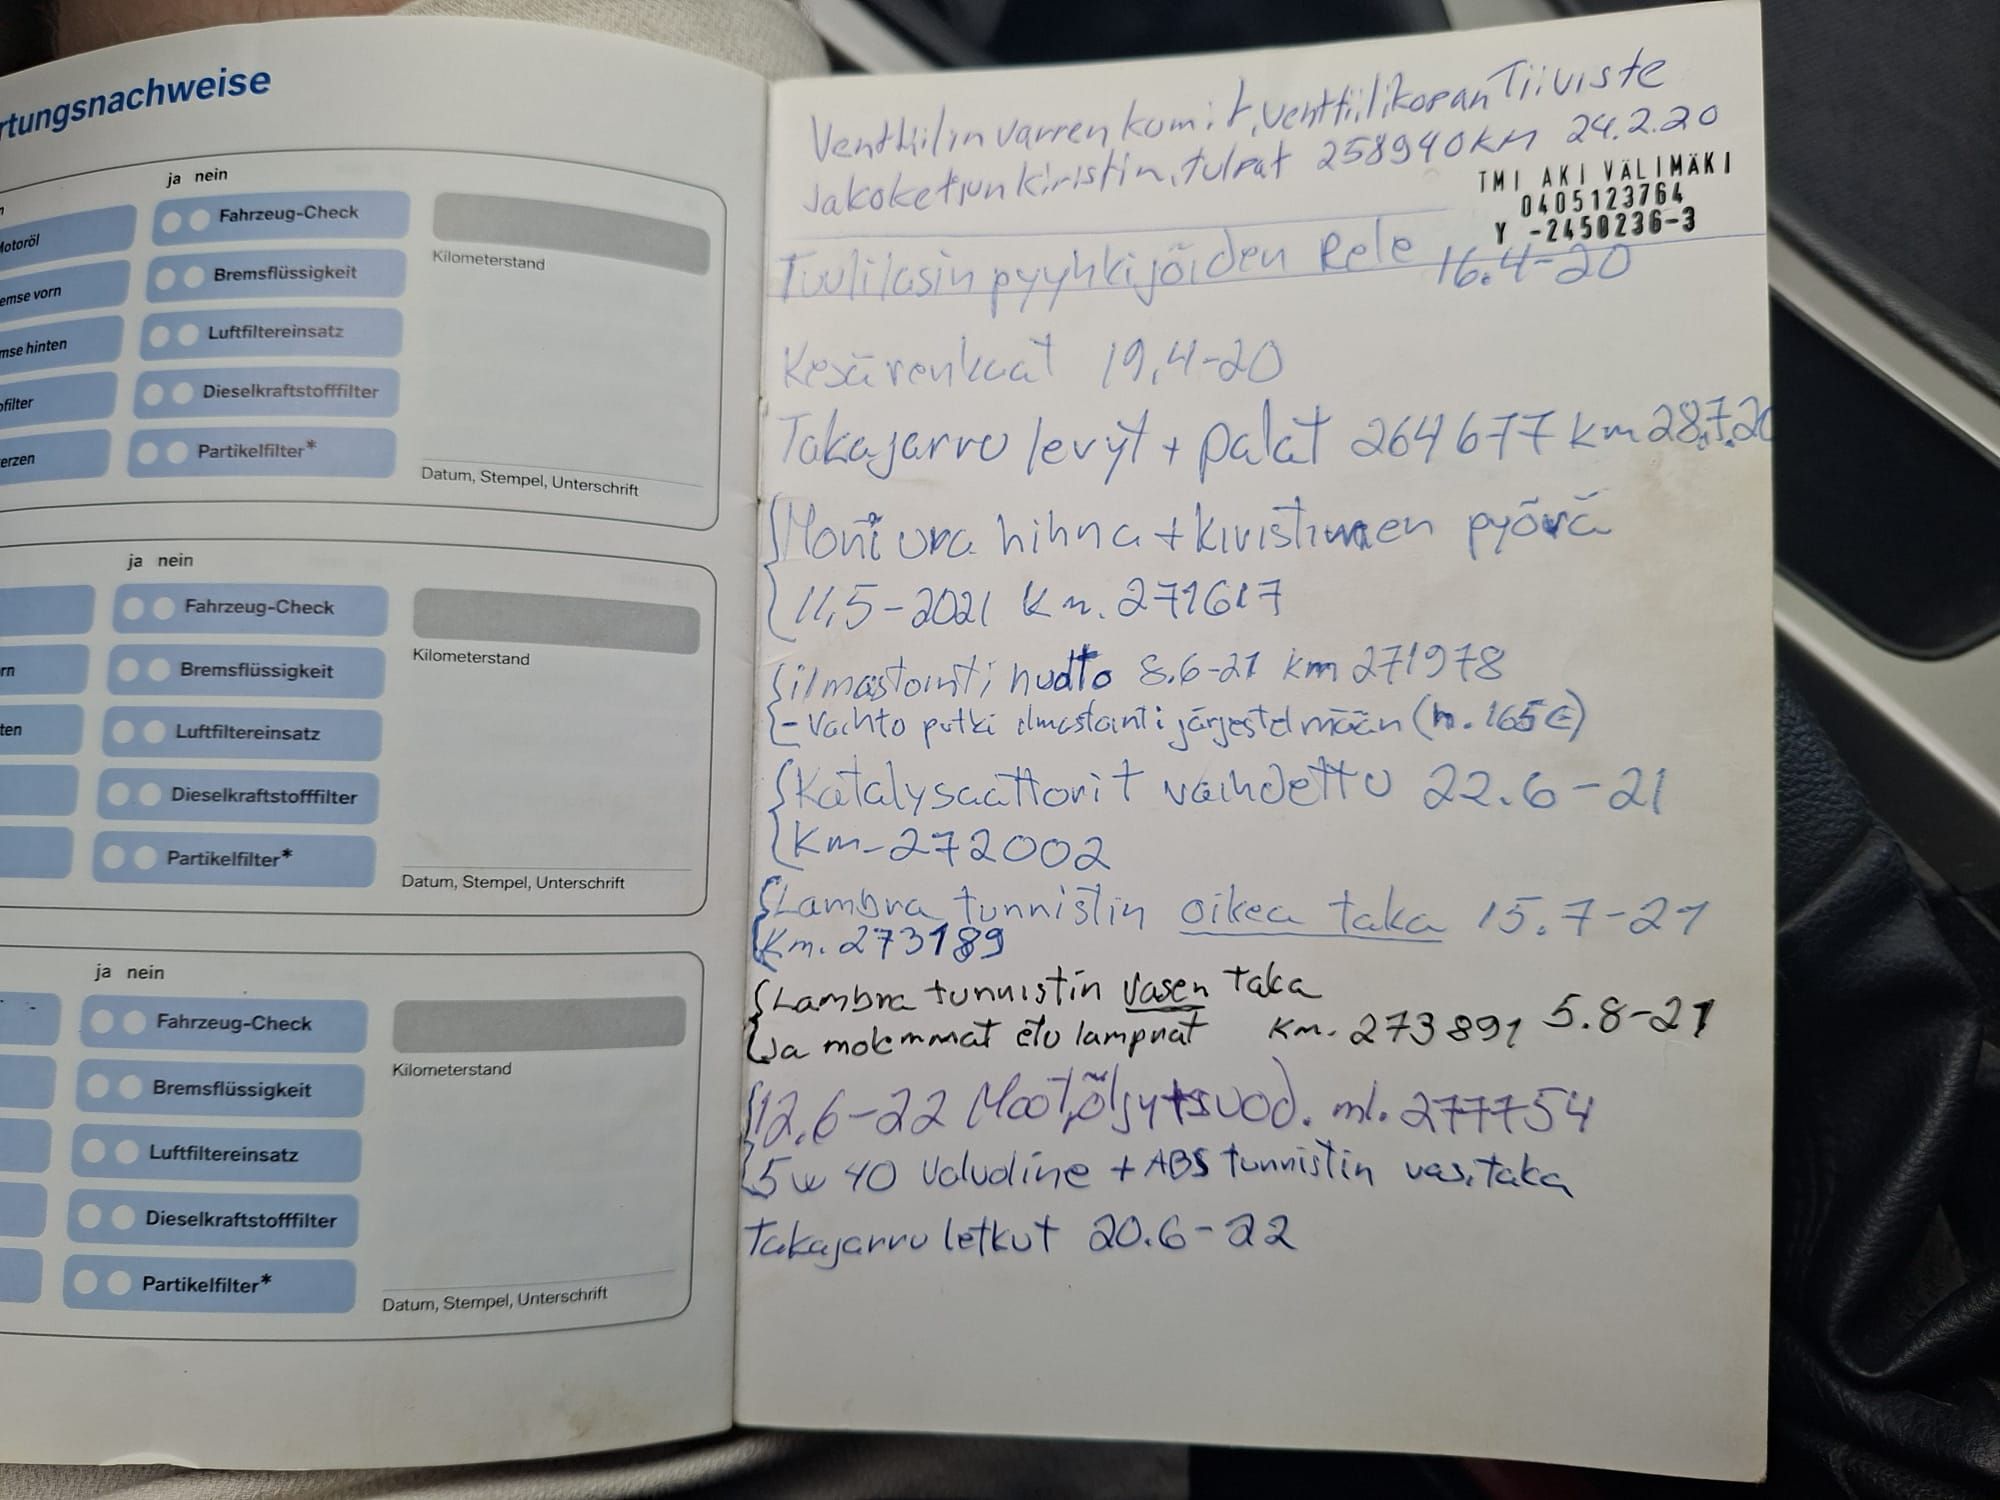 rtungsnachweise
ja nein
Motoröl
Fahrzeug-Check
emse vorn
Bremsflüssigkeit
mse hinten
Luftfiltereinsatz
ofilter
Dieselkraftstofffilter
erzen
Partikelfilter*
Kilometerstand
Datum, Stempel, Unterschrift
ja nein
Fahrzeug-Check
rn
Bremsflüssigkeit
ten
Luftfiltereinsatz
Dieselkraftstofffilter
Partikelfilter*
Kilometerstand
Datum, Stempel, Unterschrift
ja nein
Fahrzeug-Check
Bremsflüssigkeit
Luftfiltereinsatz
Dieselkraftstofffilter
Partikelfilter*
Kilometerstand
Datum, Stempel, Unterschrift
Venttiilin varren kumit, venttiilikopan Tiiviste
Jakoketjun kiristin, tulpat 258940 KM 24.2.20
TMI AKI VÄLIMÄKI
0405123764
Y -2450236-3
Tuulilasin pyyhkijöiden Rele 16.4-20
Kesärenkaat 19,4-20
Takajarru levyt + palat 264677 km 28.7.20
Moni ura hihna + kiristimen pyörä
11,5-2021 Km. 271617
ilmastointi huolto 8.6-21 km 271978
- Vaihto putki ilmastointi järjestelmään (h. 165€)
Katalysaattorit vaihdettu 22.6-21
Km-272002
Lambra tunnistin oikea taka 15.7-21
Km. 273189
Lambra tunnistin vasen taka
ja molemmat etu lamput Km. 273891 5.8-21
12.6-22 Moot,öljy+suod. ml. 277754
5w 40 Valvoline + ABS tunnistin vas.taka
Takajarru letkut 20.6-22